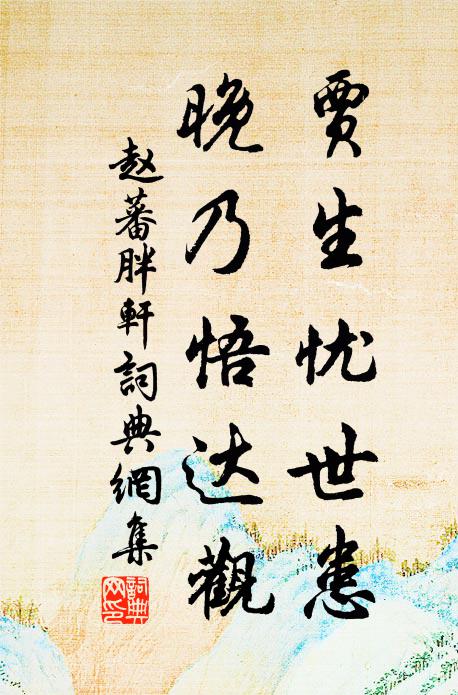 贾生忧世患
晚乃悟达觀
赵蕃胖軒詞典網集
詞典
网印